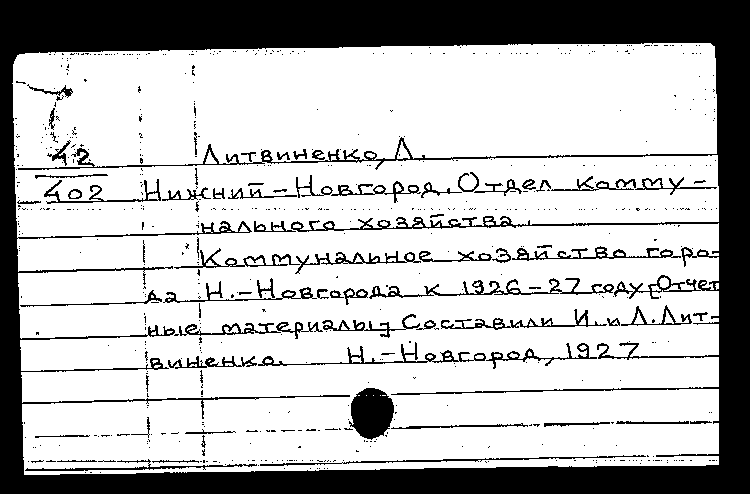 42
Литвиненко, Л.
402 Нижний-Новгород. Отдел комму-
нального хозяйства.
Коммунальное хозяйство горо-
да Н.-Новгорода к 1926-27 году [Отчет
ные материалы] Составили И. и Л. Лит-
виненко. Н.-Новгород, 1927